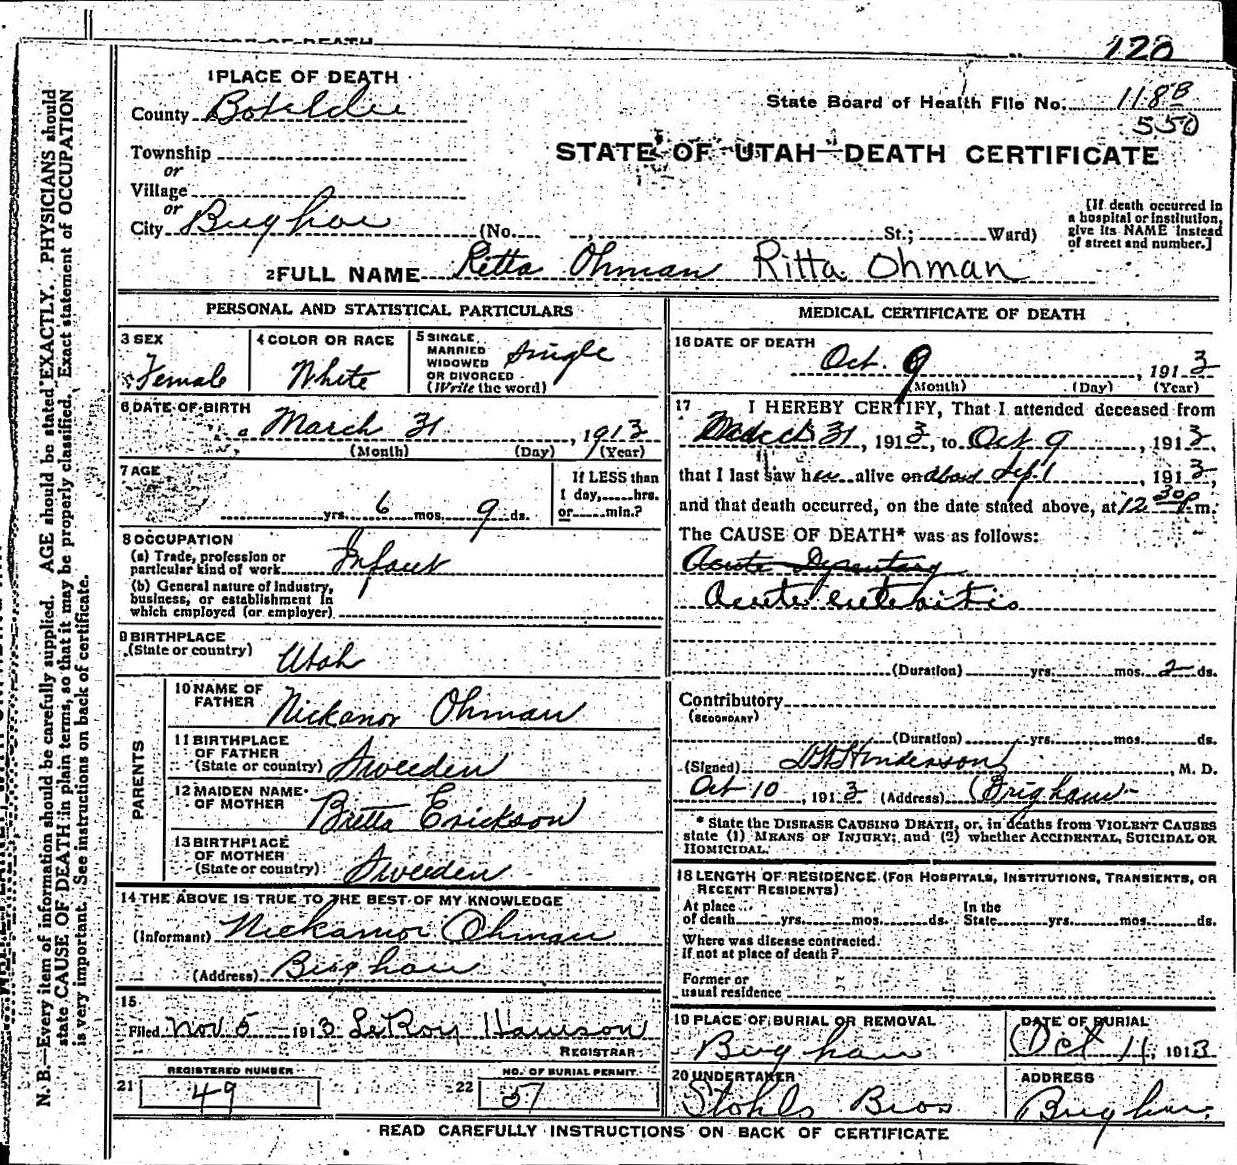 120
1 PLACE OF DEATH
County Boxelder
State Board of Health File No. 118B
550
STATE OF UTAH—DEATH CERTIFICATE
Township
or
Village
or
City Brigham (No. , St.; Ward)
[If death occurred in a hospital or institution, give its NAME instead of street and number.]
2 FULL NAME Ritta Ohman Ritta Ohman
PERSONAL AND STATISTICAL PARTICULARS
3 SEX
Female
4 COLOR OR RACE
White
5 SINGLE, MARRIED WIDOWED OR DIVORCED (Write the word)
Single
6 DATE OF BIRTH
March 31, 1913
(Month) (Day) (Year)
7 AGE
yrs. 6 mos. 9 ds.
If LESS than 1 day, hrs. or min.?
8 OCCUPATION
(a) Trade, profession or particular kind of work Infant
(b) General nature of industry, business, or establishment in which employed (or employer)
9 BIRTHPLACE
(State or country) Utah
PARENTS
10 NAME OF FATHER Nickanor Ohman
11 BIRTHPLACE OF FATHER (State or country) Sweeden
12 MAIDEN NAME OF MOTHER Britta Erickson
13 BIRTHPLACE OF MOTHER (State or country) Sweeden
14 THE ABOVE IS TRUE TO THE BEST OF MY KNOWLEDGE
(Informant) Nickanor Ohman
(Address) Brigham
15
Filed Nov 5 1913 LeRoy Hanson
REGISTRAR
REGISTERED NUMBER
21 49
NO. OF BURIAL PERMIT
22 57
MEDICAL CERTIFICATE OF DEATH
16 DATE OF DEATH
Oct. 9, 1913
(Month) (Day) (Year)
17 I HEREBY CERTIFY, That I attended deceased from
31, 1913, to Oct 9, 1913,
that I last saw her alive on about Sep. 1, 1913,
and that death occurred, on the date stated above, at 12 30 P. m.
The CAUSE OF DEATH* was as follows:
Acute
Acute enteritis
(Duration) yrs. mos. 2 ds.
Contributory
(SECONDARY)
(Duration) yrs. mos. ds.
(Signed) Henderson, M. D.
Oct 10, 1913 (Address) Brigham
* State the DISEASE CAUSING DEATH, or, in deaths from VIOLENT CAUSES
state (1) MEANS OF INJURY; and (2) whether ACCIDENTAL, SUICIDAL OR
HOMICIDAL.
18 LENGTH OF RESIDENCE (FOR HOSPITALS, INSTITUTIONS, TRANSIENTS, OR
RECENT RESIDENTS)
At place of death yrs. mos. ds. In the State yrs. mos. ds.
Where was disease contracted.
If not at place of death?
Former or
usual residence
19 PLACE OF BURIAL OR REMOVAL
Brigham
DATE OF BURIAL
Oct 11, 1913
20 UNDERTAKER
Stohls Bros
ADDRESS
Brigham
READ CAREFULLY INSTRUCTIONS ON BACK OF CERTIFICATE
N. B.—Every item of information should be carefully supplied. AGE should be stated EXACTLY. PHYSICIANS should
state CAUSE OF DEATH in plain terms, so that it may be properly classified. Exact statement of OCCUPATION
is very important. See instructions on back of certificate.